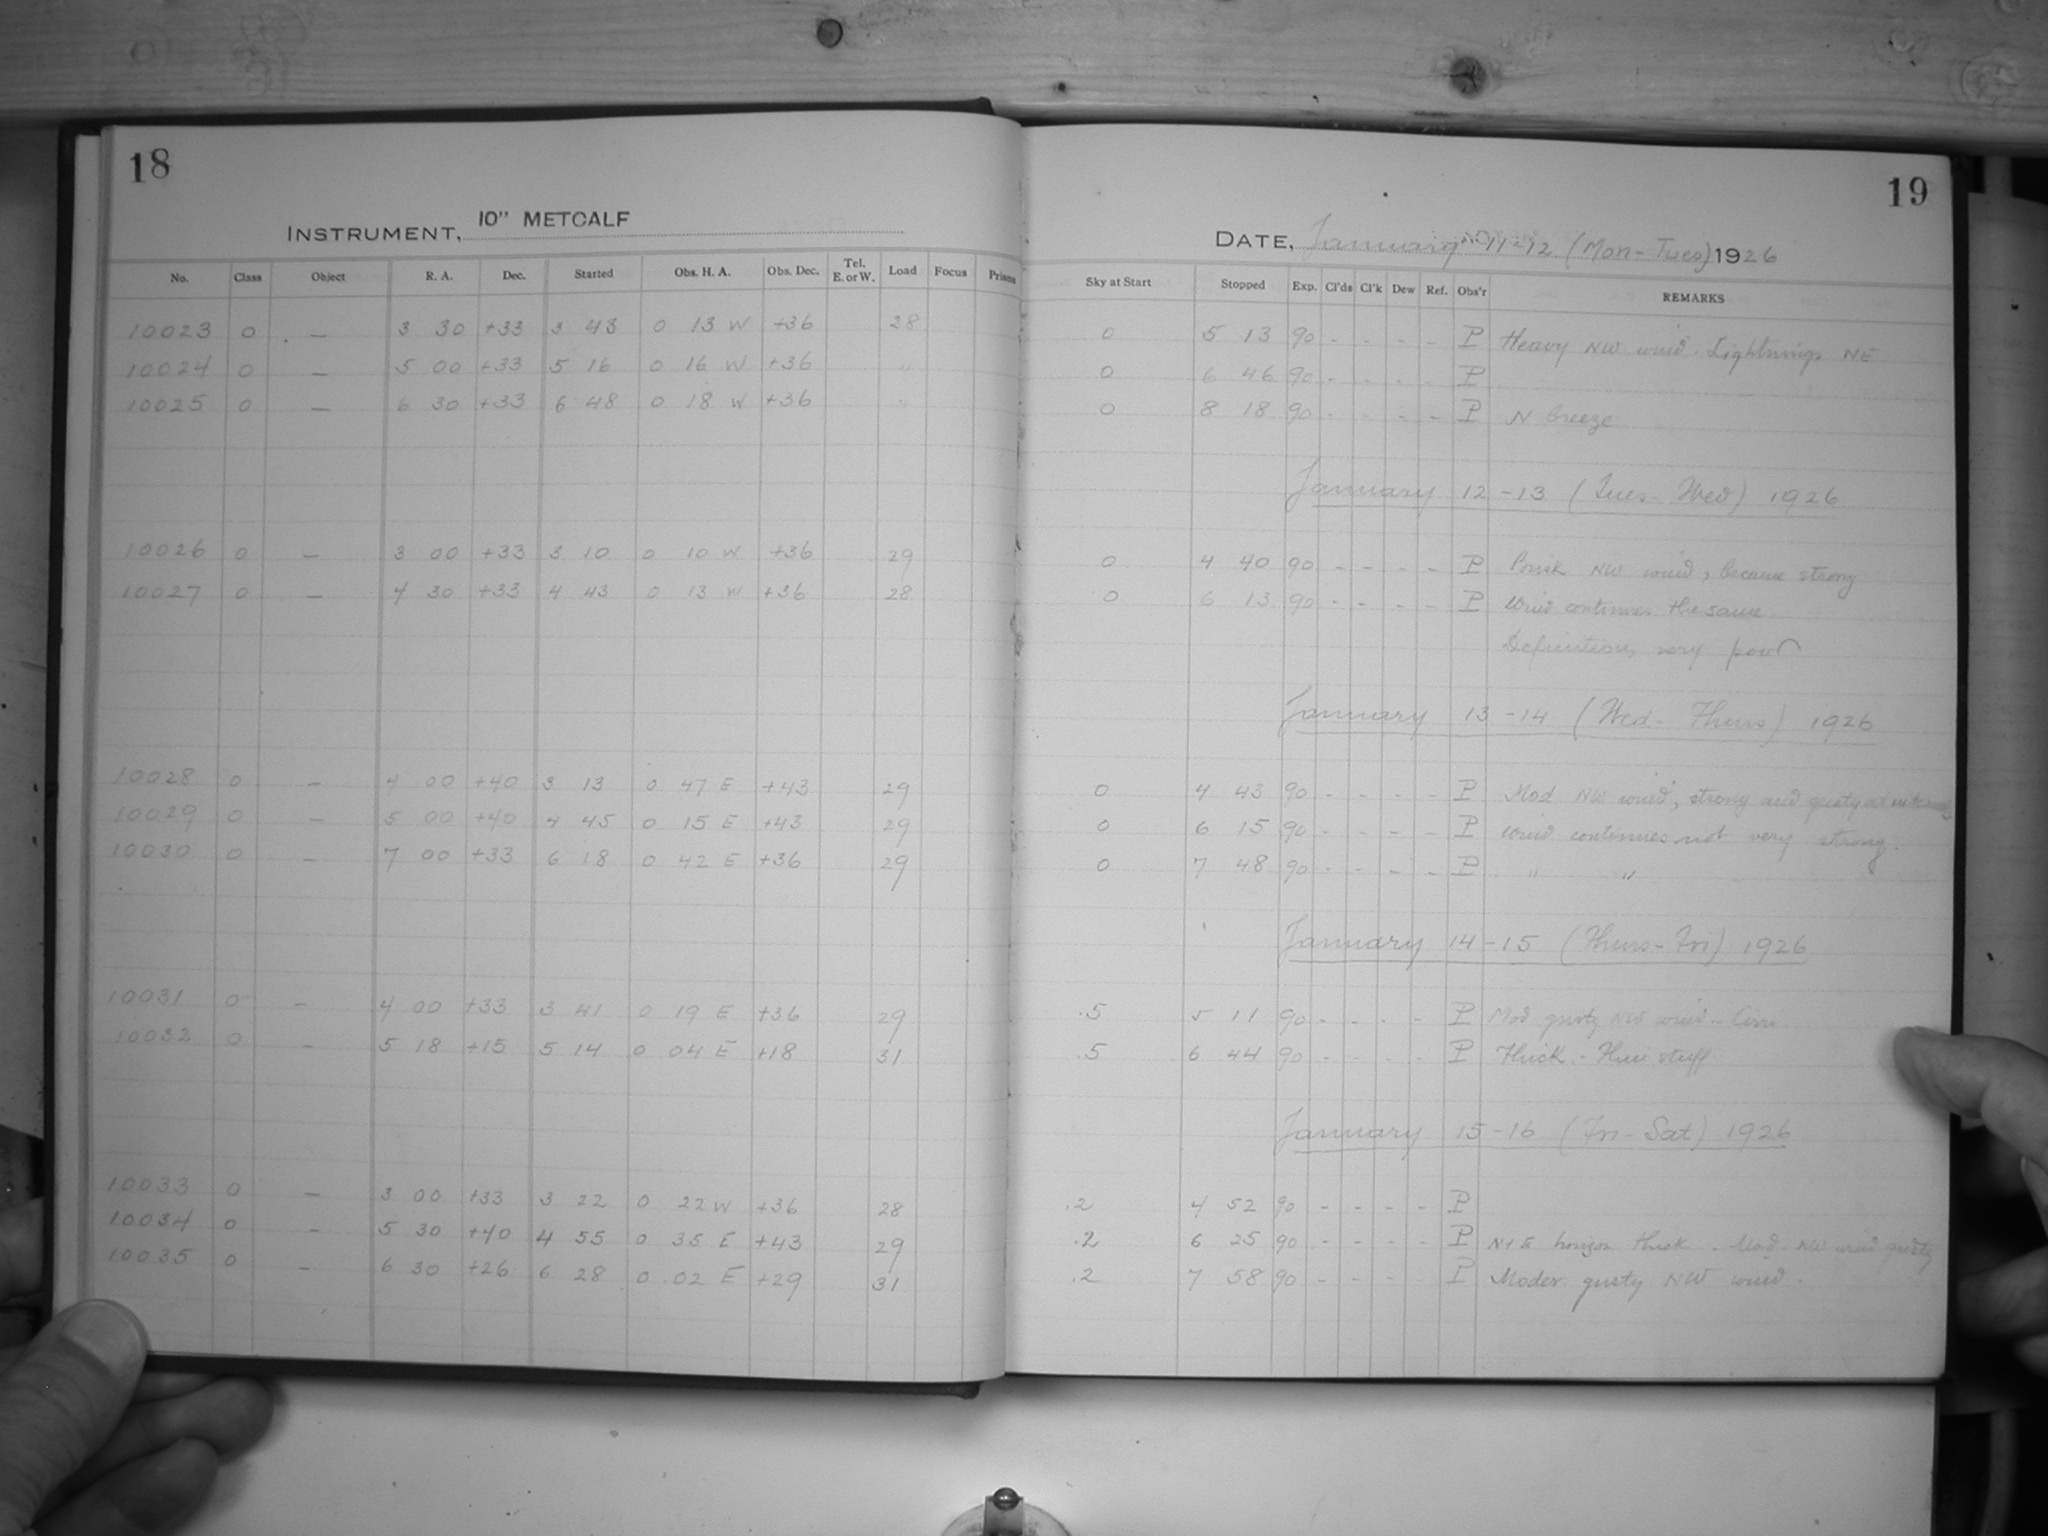 18
INSTRUMENT, 10" METCALF
No. Class Object R. A. Dec. Started Obs. H. A. Obs. Dec. Tel. E. or W. Load Focus Prisms
10023 0 — 3 30 +33 3 43 0 13 W +36 28
10024 0 — 5 00 +33 5 16 0 16 W +36 "
10025 0 — 6 30 +33 6 48 0 18 W +36 "
10026 0 — 3 00 +33 3 10 0 10 W +36 29
10027 0 — 4 30 +33 4 43 0 13 W +36 28
10028 0 — 4 00 +40 3 13 0 47 E +43 29
10029 0 — 5 00 +40 4 45 0 15 E +43 29
10030 0 — 7 00 +33 6 18 0 42 E +36 29
10031 0 — 4 00 +33 3 41 0 19 E +36 29
10032 0 — 5 18 +15 5 14 0 04 E +18 31
10033 0 — 3 00 +33 3 22 0 22 W +36 28
10034 0 — 5 30 +40 4 55 0 35 E +43 29
10035 0 — 6 30 +26 6 28 0 02 E +29 31
19
DATE, January 11-12 (Mon-Tues) 1926
Sky at Start Stopped Exp. Cl'ds Cl'k Dew Ref. Obs'r REMARKS
0 5 13 90 - - - - P Heavy NW wind. Lightnings NE
0 6 46 90 - - - - P
0 8 18 90 - - - - P N breeze
January 12-13 (Tues-Wed) 1926
0 4 40 90 - - - - P Brisk NW wind, became strong
0 6 13 90 - - - - P Wind continues the same
Definition very poor
January 13-14 (Wed-Thurs) 1926
0 4 43 90 - - - - P Mod NW wind, strong and gusty at
0 6 15 90 - - - - P Wind continues not very strong.
0 7 48 90 - - - - P " "
January 14-15 (Thurs-Fri) 1926
.5 5 11 90 - - - - P Mod gusty NW wind - Cirri.
.5 6 44 90 - - - - P Thick - Thin stuff
January 15-16 (Fri-Sat) 1926
.2 4 52 90 - - - - P
.2 6 25 90 - - - - P horizon thick. Mod. NW wind gusty
.2 7 58 90 - - - - P Moder. gusty NW wind.